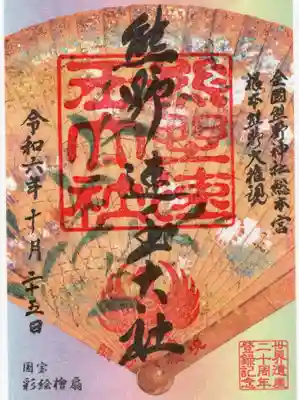 全國熊野神社総本宮
根本熊野大権現
熊野速玉大社
熊野速
玉大社
令和六年十月二十五日
国宝
彩絵檜扇
世界遺産
二十周年
登録記念